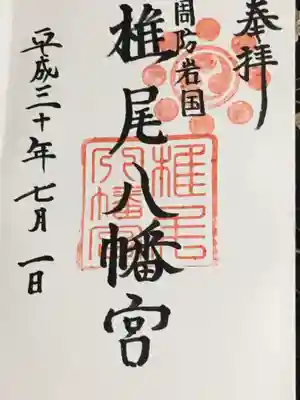 奉拝
周防岩国
椎尾八幡宮
椎尾
八幡宮
平成三十年七月一日